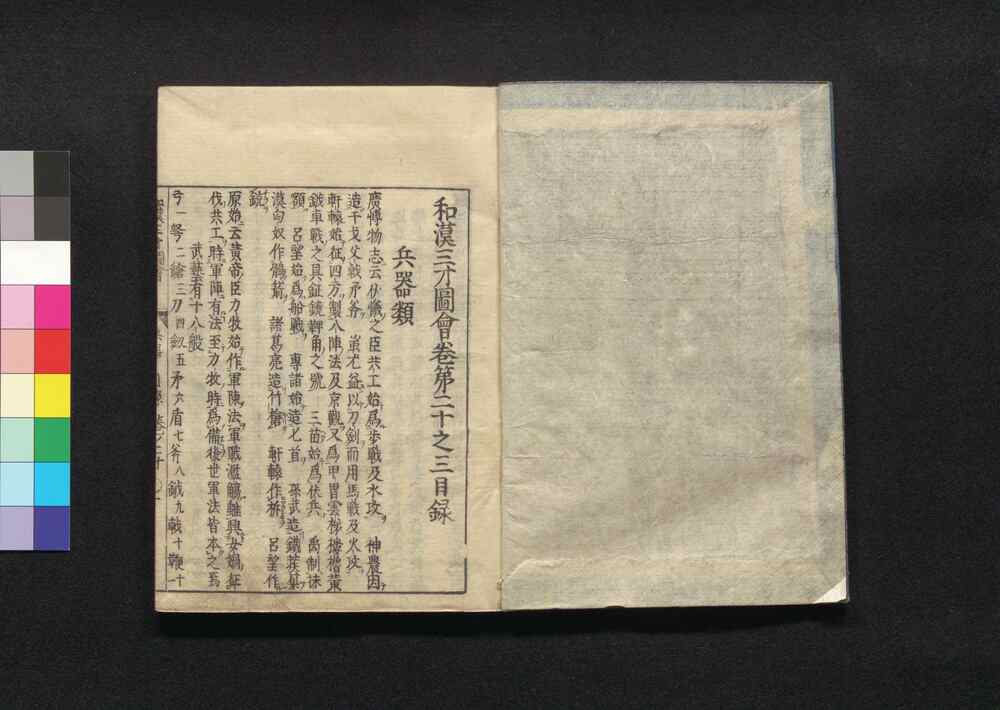 和漢三才圖會卷第二十之三目録
兵器類
廣博物志云伏羲之臣共工始爲歩戰及水攻 神農因
造干戈戈戟矛斧 蚩尤益以刀劍而用馬戰及火攻
軒轅始征四方製八陣法及京觀又爲甲冑雲梯樓櫓
鉞車戰之具鉦鐃鞞角之號 三苗始爲伏兵 禹制
呂望始爲船戰 專諸始造匕首 孫武造鐵蒺藜
漢匈奴作鳴箭 諸葛亮造竹槍 軒轅作柝 呂望作
銃
原始云黄帝臣力牧始作軍陳法軍戰濫觴雖興女媧征
伐共工時軍陣有法至力牧時爲備後世軍法皆本之焉
武藝有十八般
弓一弩二鎗三刀四劔五矛六盾七斧八鉞九戟十鞭十一